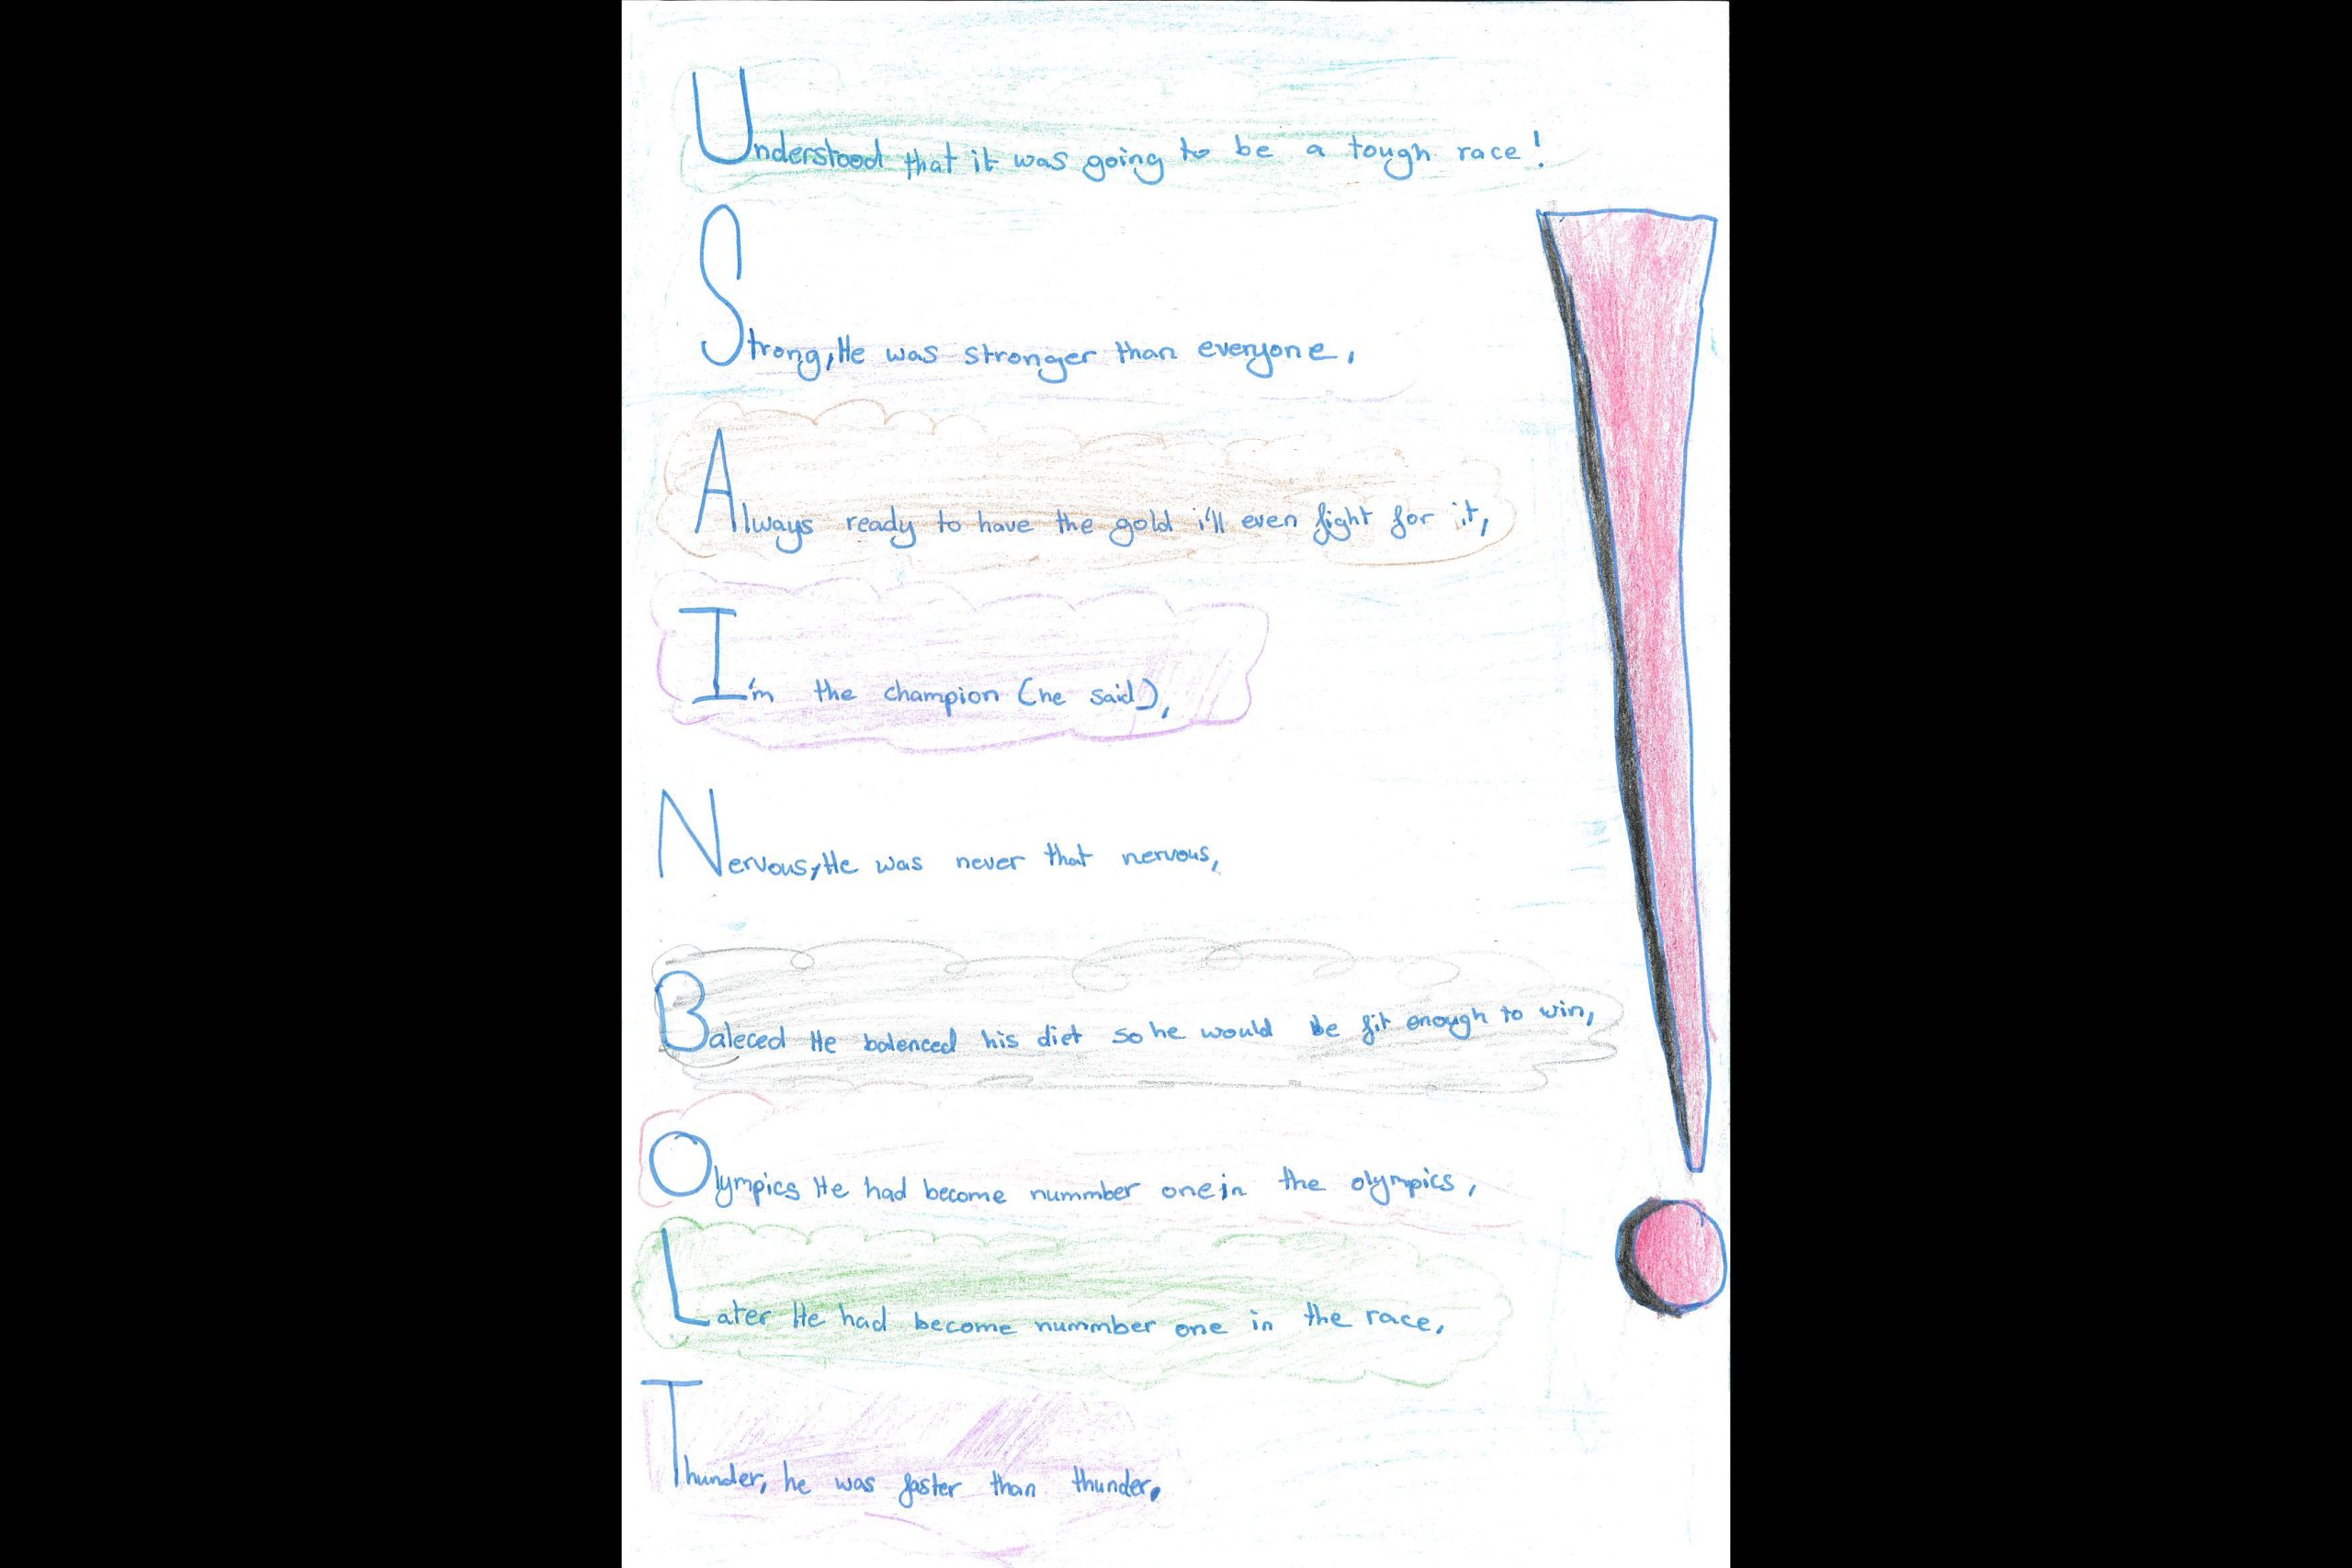 Understood that it was going to be a tough race!
Strong, He was stronger than everyone,
Always ready to have the gold i'll even fight for it,
I'm the champion (he said),
Nervous, He was never that nervous,
Baleced He balenced his diet so he would be fit enough to win,
Olympics He had become nummber one in the olympics,
Later He had become nummber one in the race,
Thunder, he was faster than thunder.